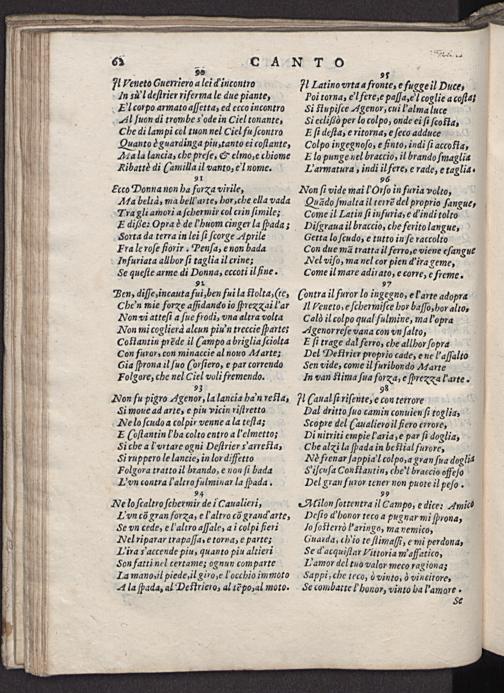 62 CANTO
90
Il Veneto Guerriero a lei d'incontro
In sù'l destrier rifermа le due piante,
E'l corpo armato assetta, ed ecco incontro
Al suon di trombe s'ode in Ciel tonante,
Che di lampi col tuon nel Ciel fu scontro
Quanto è guardinga piu, tanto ei costante,
Ma la lancia, che prese, & elmo, e chiome
Ribattè di Camilla il vanto, e'l nome.
91
Ecco Donna non ha forza virile,
Ma beltà, ma bell'arte, hor, che ella vada
Tra gli amori a schermir col crin simile;
E disse: Opra è de l'huom cinger la spada;
Sorta da terra in lei si scorge Aprile
Fra le rose fiorir. Pensa, e non bada
Infuriata allhor si taglia il crine;
Se queste arme di Donna, eccoti il fine.
92
Ben, disse, incauta fui, ben fui la stolta, (te,
Che'n mie forze affidando io sprezzai l'ar
Non vi attesi a sue frodi, vna altra volta
Non mi coglierà alcun piu'n treccie sparte;
Costantin prẽde il Campo a briglia sciolta
Con furor, con minaccie al nouo Marte;
Gia sprona il suo Corsiero, e par correndo
Folgore, che nel Ciel voli fremendo.
93
Non fu pigro Agenor, la lancia ha'n resta,
Si moue ad arte, e piu vicin ristretto
Ne lo scudo a colpir venne a la testa;
E Costantin l'ha colto entro a l'elmetto;
Si che a l'vrtare ogni Destrier s'arresta,
Si ruppero le lancie, in lor disfetto
Folgora tratto il brando, e non si bada
L'vn contra l'altro fulminar la spada.
94
Ne lo scaltro schermir de i Caualieri,
L'vn cõ gran forza, e l'altro cõ grand'arte,
Se vn cede, e l'altro assale, a i colpi fieri
Nel riparar trapassa, e torna, e parte;
L'ira s'accende piu, quanto piu altieri
Son fatti nel certame; ognun comparte
La mano, il piede, il giro, e l'occhio immoto
A la spada, al Destriero, al tẽpo, al moto.
95
Il Latino vrta a fronte, e fugge il Duce,
Poi torna, e'l fere, e passa, e'l coglie a costa;
Si stupisce Agenor, cui l'alma luce
Si eclissò per lo colpo, onde ei si scosta,
E si desta, e ritorna, e seco adduce
Colpo ingegnoso, e finto, indi si accosta,
E lo punge nel braccio, il brando smaglia
L'armatura, indi il fere, e rade, e taglia.
96
Non si vide mai l'Orso in furia volto,
Quãdo smalta il terrẽ del proprio sangue,
Come il Latin s'infuria, e d'indi tolto
Disgraua il braccio, che ferito langue,
Getta lo scudo, e tutto in se raccolto
Con due mã tratta il ferro, e viene esangue
Nel viso, ma nel cor pien d'ira geme,
Come il mare adirato, e corre, e freme.
97
Contra il furor lo ingegno, e l'arte adopra
Il Veneto, e schermisce hor basso, hor alto,
Calò il colpo qual fulmine, ma l'opra
Agenor rese vana con vn salto,
E si trage dal ferro, che allhor sopra
Del Destrier proprio cade, e ne l'assalto
Sen vide, come il furibondo Marte
In van stima sua forza, e sprezza l'arte.
98
Il Canal si risente, e con terrore
Dal dritto suo camin conuien si toglia,
Scopre del Caualiero il fiero errore,
Di nitriti empie l'aria, e par si doglia,
Che alzi la spada in bestial furore,
Nè frenar sappia'l colpo, a gran sua doglia
S'iscusa Constantin, che'l braccio offeso
Del gran furor tener non puote il peso.
99
Milon sottentra il Campo, e dice: Amico
Desio d'honor teco a pugnar mi sprona,
Io sosterrò l'aringo, ma nemico,
Guarda, ch'io te stimassi, e mi perdona,
Se d'acquistar Vittoria m'affatico,
L'amor del tuo valor meco ragiona;
Sappi, che teco, ò vinto, ò vincitore,
Se combatte l'honor, vinto ha l'amore.
Se